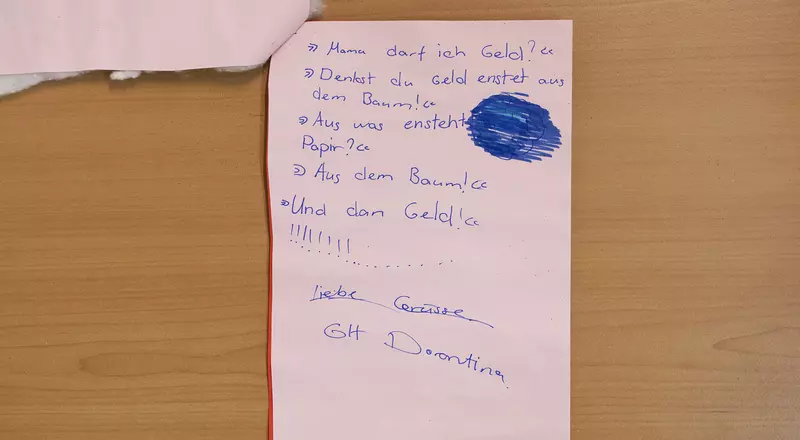 »Mama darf ich Geld?«
»Denkst du Geld enstet aus
dem Baum!«
»Aus was ensteht
Papir?«
»Aus dem Baum!«
»Und dan Geld!«
!!!!!!!!
liebe Grüsse
GH Dorontina